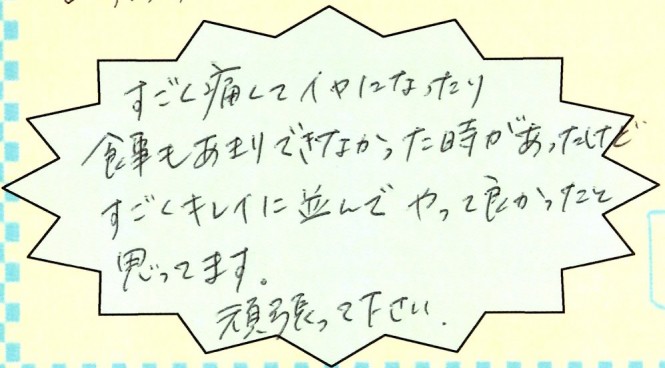 すごく痛くてイヤになったり
食事もあまりできなかった時があったけど
すごくキレイに並んで やって良かったと
思ってます。
頑張って下さい.